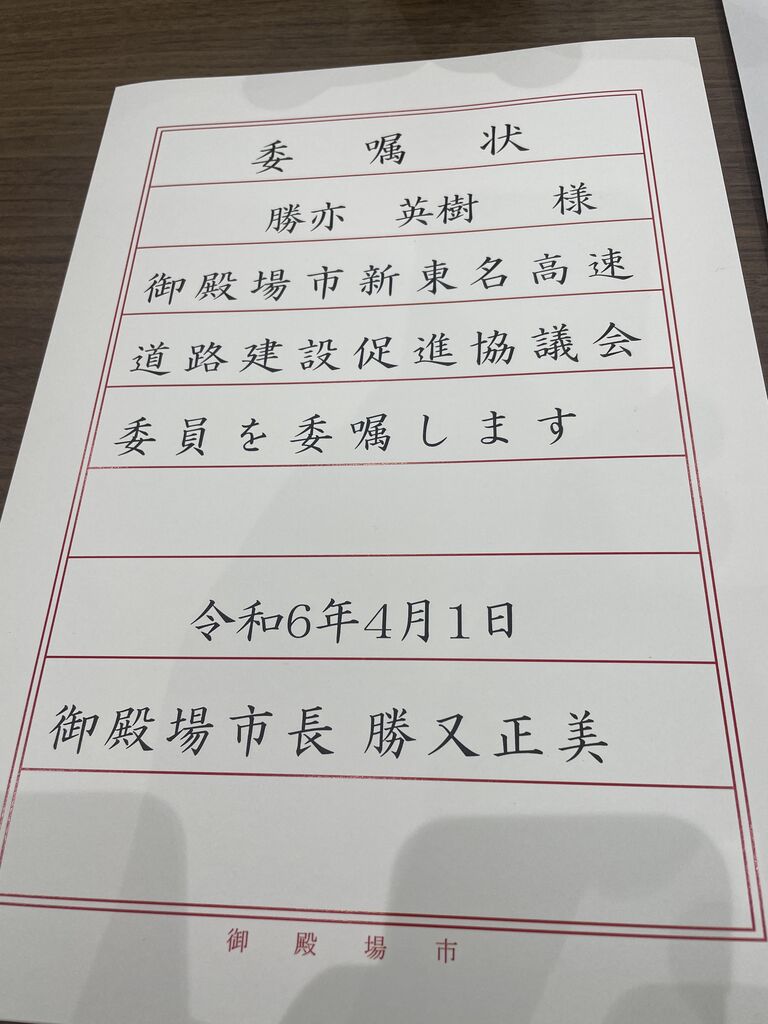 委嘱状
勝亦 英樹 様
御殿場市新東名高速
道路建設促進協議会
委員を委嘱します
令和6年4月1日
御殿場市長 勝又正美
御殿場市